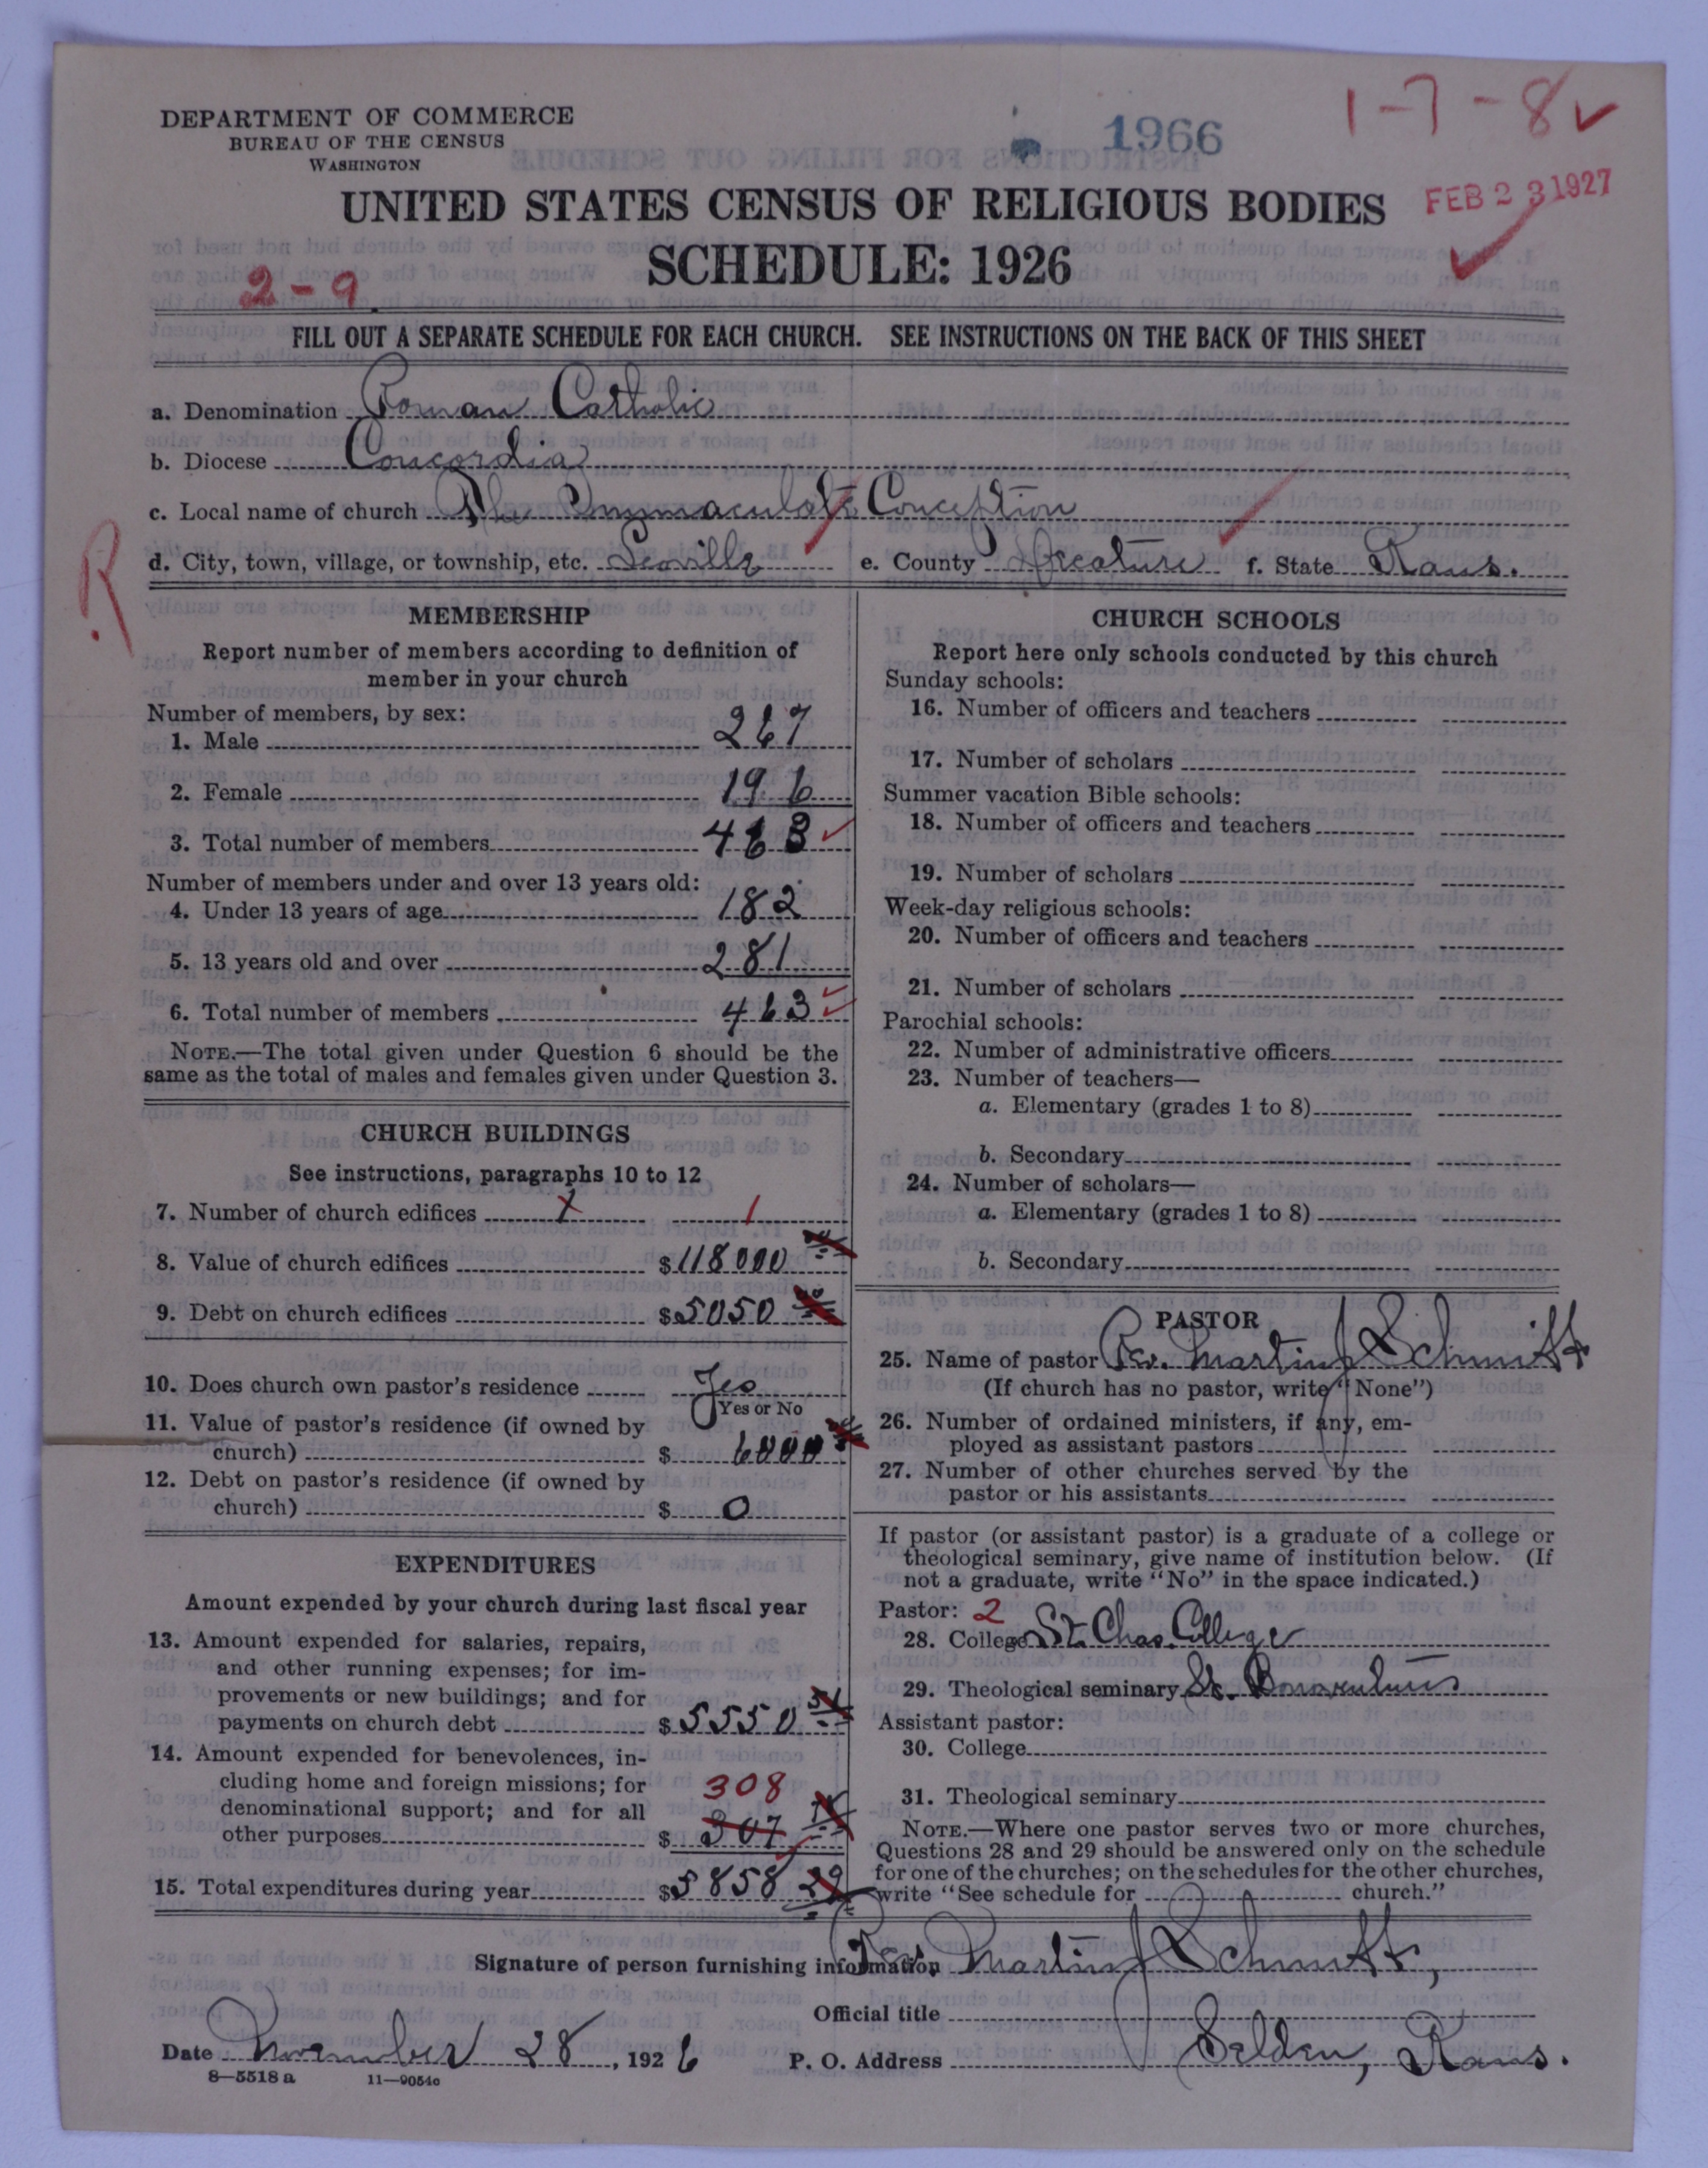 DEPARTMENT OF COMMERCE
BUREAU OF THE CENSUS
WASHINGTON
1966
1-7-8
FEB 23 1927
UNITED STATES CENSUS OF RELIGIOUS BODIES
SCHEDULE: 1926
2-9
FILL OUT A SEPARATE SCHEDULE FOR EACH CHURCH. SEE INSTRUCTIONS ON THE BACK OF THIS SHEET
a. Denomination Roman Catholic
b. Diocese Concordia
c. Local name of church The Immaculate Conception
R
d. City, town, village, or township, etc. Leoville e. County Decature f. State Kans.
MEMBERSHIP
Report number of members according to definition of
member in your church
Number of members, by sex:
1. Male 267
2. Female 196
3. Total number of members 463
Number of members under and over 13 years old:
4. Under 13 years of age 182
5. 13 years old and over 281
6. Total number of members 463
NOTE.—The total given under Question 6 should be the
same as the total of males and females given under Question 3.
CHURCH BUILDINGS
See instructions, paragraphs 10 to 12
7. Number of church edifices 1 1
8. Value of church edifices $118000
9. Debt on church edifices $5050
10. Does church own pastor's residence Yes
Yes or No
11. Value of pastor's residence (if owned by
church) $ 6000
12. Debt on pastor's residence (if owned by
church) $ 0
EXPENDITURES
Amount expended by your church during last fiscal year
13. Amount expended for salaries, repairs,
and other running expenses; for im-
provements or new buildings; and for
payments on church debt $5550 51
14. Amount expended for benevolences, in-
cluding home and foreign missions; for
308
denominational support; and for all
other purposes $ 307
15. Total expenditures during year $5858 29
CHURCH SCHOOLS
Report here only schools conducted by this church
Sunday schools:
16. Number of officers and teachers
17. Number of scholars
Summer vacation Bible schools:
18. Number of officers and teachers
19. Number of scholars
Week-day religious schools:
20. Number of officers and teachers
21. Number of scholars
Parochial schools:
22. Number of administrative officers
23. Number of teachers—
a. Elementary (grades 1 to 8)
b. Secondary
24. Number of scholars—
a. Elementary (grades 1 to 8)
b. Secondary
PASTOR
25. Name of pastor Rev. Martin J Schmitt
(If church has no pastor, write "None")
26. Number of ordained ministers, if any, em-
ployed as assistant pastors
27. Number of other churches served by the
pastor or his assistants
If pastor (or assistant pastor) is a graduate of a college or
theological seminary, give name of institution below. (If
not a graduate, write "No" in the space indicated.)
Pastor: 2
28. College St. Chas. College
29. Theological seminary St.
Assistant pastor:
30. College
31. Theological seminary
NOTE.—Where one pastor serves two or more churches,
Questions 28 and 29 should be answered only on the schedule
for one of the churches; on the schedules for the other churches,
write "See schedule for church."
Signature of person furnishing information Rev. Martin J Schmitt,
Official title
Date November 28, 1926 P. O. Address Selden, Kans.
8—5518 a 11—9054c